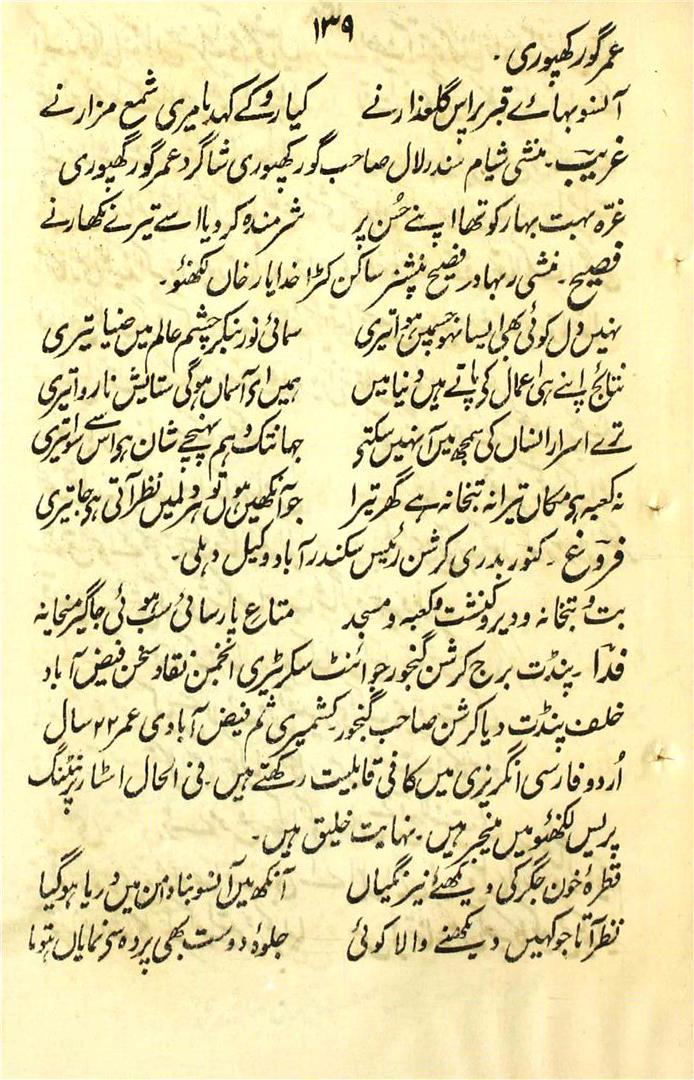 ۱۳۹
عمر گورکھپوری۔
آنسو بہائے قبر پر اس گلعذار نے کیا روکے کہدیا میری شمع مزار نے
غریب۔ منشی شیام سندر لال صاحب گورکھپوری شاگرد عمر گورکھپوری
غرّہ بہت بہار کو تھا اپنے حُسن پر شرمندہ کردیا اسے تیرے نکھار نے
فصیح۔ منشی بہادر فصیح پنشنر ساکن کٹرا خدایار خاں لکھنؤ۔
نہیں دل کوئی بھی ایسا نہو جسمیں ہوا تیری سمائی نور بنکر چشم عالم میں ضیا تیری
نتائج اپنے ہی اعمال کی پاتے ہیں دنیا میں ہمیں اے آسماں ہوگی ستایش ناروا تیری
ترے اسرار انساں کی سمجھ میں آ نہیں سکتے جہانتک وہم پہنچے شان ہو اس سے سوا تیری
نہ کعبہ ہی مکاں تیرا نہ بتخانہ ہے گھر تیرا جو آنکھیں ہوں تو ہر دلمیں نظر آتی ہی جا تیری
فروغ۔ کنور بدری کرشن رئیس سکندر آباد وکیل دہلی۔
بت و بتخانہ و دیر و کنشت و کعبہ و مسجد متاع پارسائی سب ہوئی جاگیر میخانہ
فدا۔ پنڈت برج کرشن گنجور جوائنٹ سکرٹیری انجمن نقاد سخن فیض آباد
خلف پنڈت دیا کرشن صاحب گنجور۔ کشمیری ثم فیض آبادی عمر ۲۲ سال
اُردو فارسی انگریزی میں کافی قابلیت رکھتے ہیں۔ فی الحال اسٹار پرنٹنگ
پریس لکھنؤ میں منیجر ہیں۔ نہایت خلیق ہیں۔
قطرۂ خون جگر کی دیکھئے نیرنگیاں آنکھ میں آنسو بنا دامن میں دریا ہو گیا
نظر آتا جو کہیں دیکھنے والا کوئی جلوۂ دوست بھی پردہ سی نمایاں ہوتا